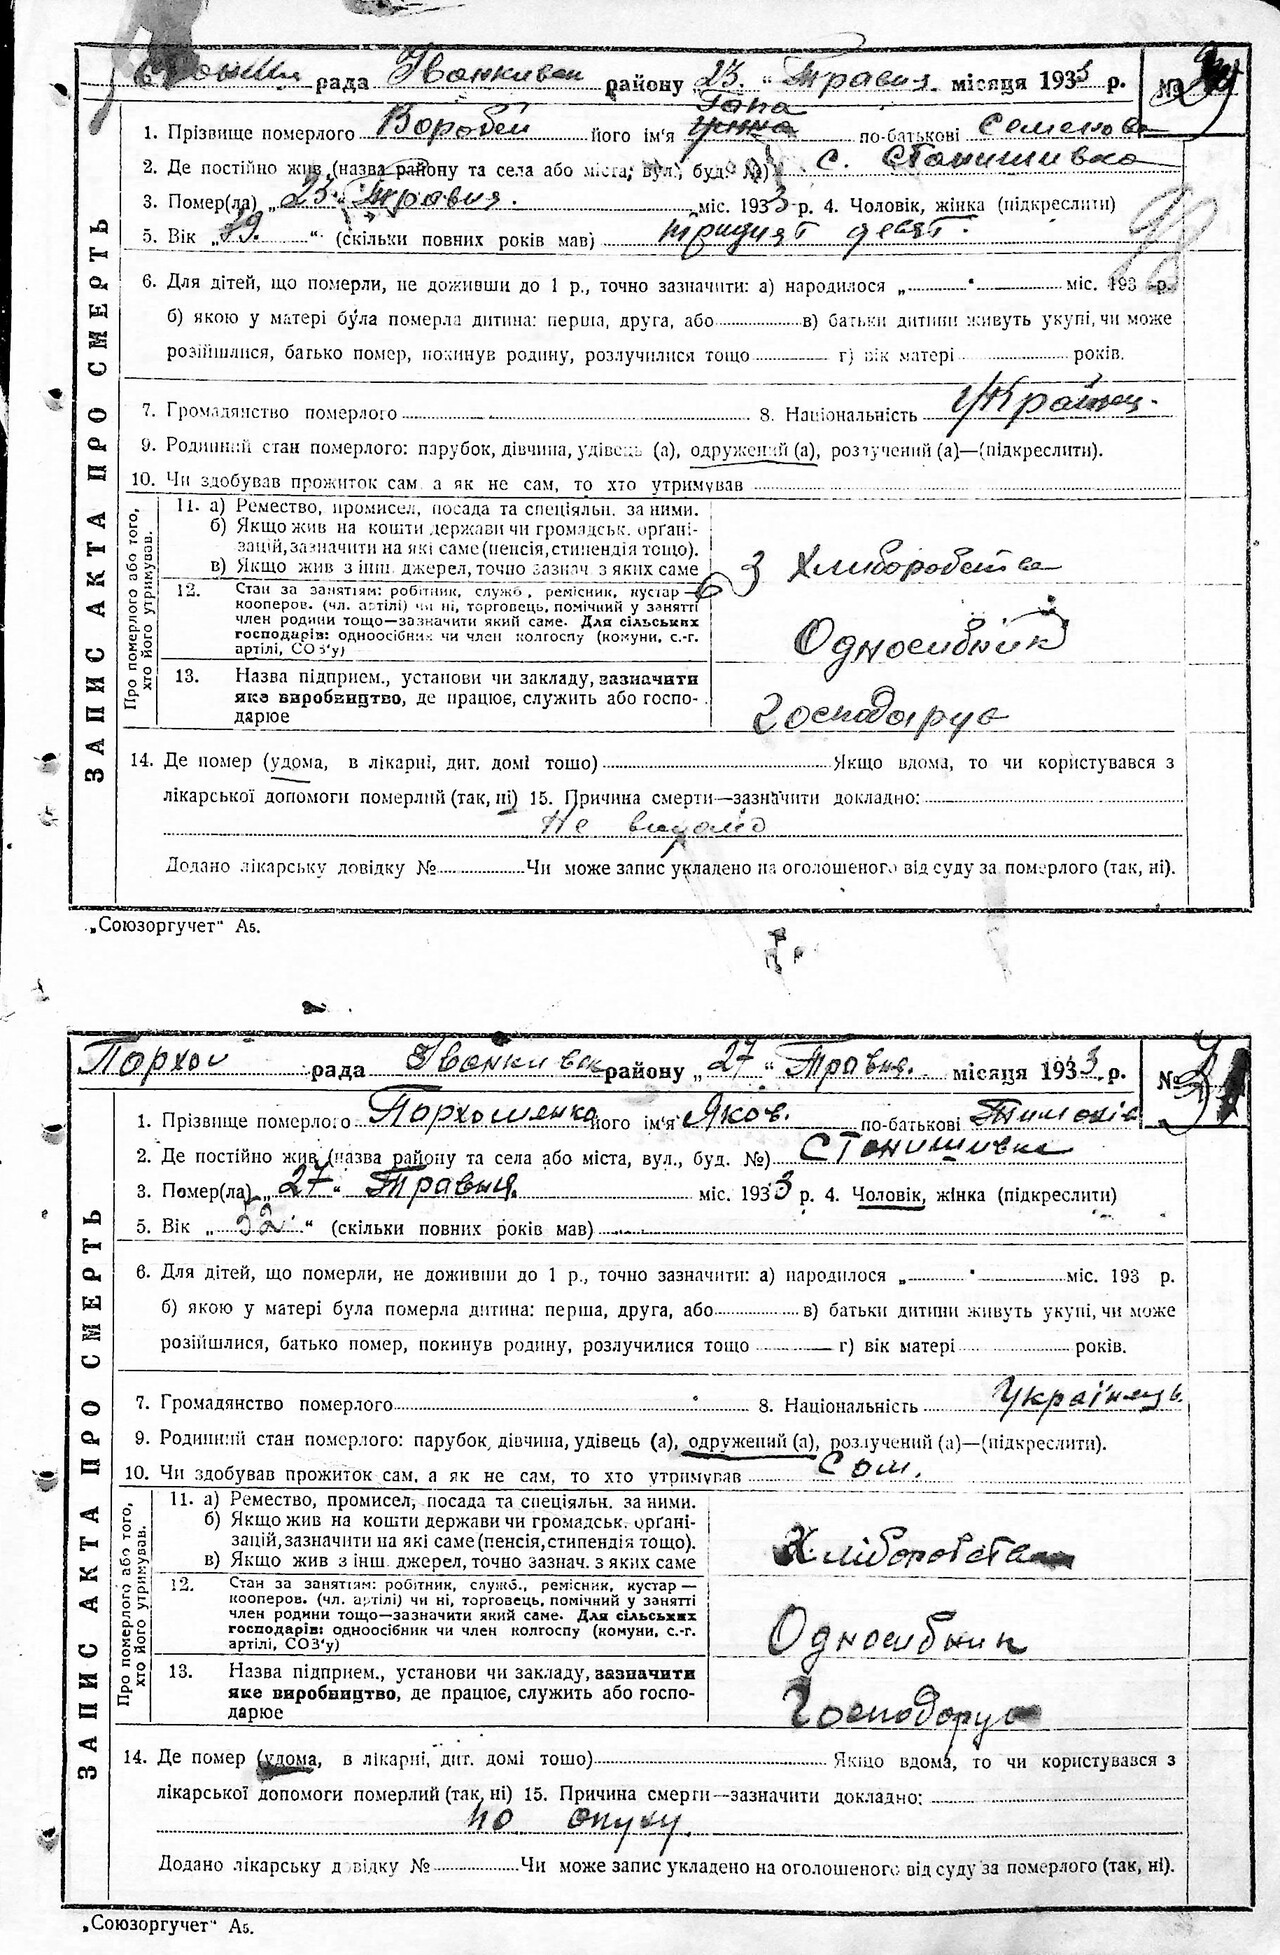 рада Іванкивск району "23" Травня місяця 1933 р. №
ЗАПИС АКТА ПРО СМЕРТЬ
Гапа
1. Прізвище померлого Воробей його ім'я по-батькові Семенова
2. Де постійно жив (назва району та села або міста, вул., буд. №) с. Станишивка
3. Помер(ла) „23" Травня міс. 1933 р. 4. Чоловік, жінка (підкреслити)
5. Вік „ " (скільки повних років мав)
6. Для дітей, що померли, не доживши до 1 р., точно зазначити: а) народилося „ " міс. 193 р.
б) якою у матері була померла дитина: перша, друга, або в) батьки дитини живуть укупі, чи може
розійшлися, батько помер, покинув родину, розлучилися тощо г) вік матері років.
7. Громадянство померлого 8. Національність Украйнец.
9. Родинний стан померлого: парубок, дівчина, удівець (а), одружений (а), розлучений (а)—(підкреслити).
10. Чи здобував прожиток сам, а як не сам, то хто утримував
Про померлого або того, хто його утримував.
11. а) Ремество, промисел, посада та спеціяльн. за ними.
б) Якщо жив на кошти держави чи громадськ. орґані-
зацій, зазначити на які саме (пенсія, стипендія тощо).
в) Якщо жив з інш. джерел, точно зазнач. з яких саме
З Хлиборобства
12. Стан за занятіям: робітник, служб., ремісник, кустар—
кооперов. (чл. артілі) чи ні, торговець, помічний у занятті
член родини тощо—зазначити який саме. Для сільських
господарів: одноосібник чи член колгоспу (комуни, с.-г.
артілі, СОЗ'у)
Односибник
13. Назва підприєм., установи чи закладу, зазначити
яке виробництво, де працює, служить або госпо-
дарює
Господарує
14. Де помер (удома, в лікарні, дит. домі тощо) Якщо вдома, то чи користувався з
лікарської допомоги померлий (так, ні) 15. Причина смерти—зазначити докладно:
Не видомо
Додано лікарську довідку № Чи може запис укладено на оголошеного від суду за померлого (так, ні).
„Союзоргучет" А5.
Пархом рада Іванкивск району „27" Травня місяця 1933 р. №
ЗАПИС АКТА ПРО СМЕРТЬ
1. Прізвище померлого Пархоменко його ім'я Яков по-батькові
2. Де постійно жив (назва району та села або міста, вул., буд. №) Станишивка
3. Помер(ла) „27" Травня міс. 1933 р. 4. Чоловік, жінка (підкреслити)
5. Вік „52" (скільки повних років мав)
6. Для дітей, що померли, не доживши до 1 р., точно зазначити: а) народилося „ " міс. 193 р.
б) якою у матері була померла дитина: перша, друга, або в) батьки дитини живуть укупі, чи може
розійшлися, батько помер, покинув родину, розлучилися тощо г) вік матері років.
7. Громадянство померлого 8. Національність Українець
9. Родинний стан померлого: парубок, дівчина, удівець (а), одружений (а), розлучений (а)—(підкреслити).
10. Чи здобував прожиток сам, а як не сам, то хто утримував Сам.
Про померлого або того, хто його утримував.
11. а) Ремество, промисел, посада та спеціяльн. за ними.
б) Якщо жив на кошти держави чи громадськ. орґані-
зацій, зазначити на які саме (пенсія, стипендія тощо).
в) Якщо жив з інш. джерел, точно зазнач. з яких саме
Хліборобства
12. Стан за занятіям: робітник, служб., ремісник, кустар—
кооперов. (чл. артілі) чи ні, торговець, помічний у занятті
член родини тощо—зазначити який саме. Для сільських
господарів: одноосібник чи член колгоспу (комуни, с.-г.
артілі, СОЗ'у)
Односибник
13. Назва підприєм., установи чи закладу, зазначити
яке виробництво, де працює, служить або госпо-
дарює
Господарує
14. Де помер (удома, в лікарні, дит. домі тощо) Якщо вдома, то чи користувався з
лікарської допомоги померлий (так, ні) 15. Причина смерти—зазначити докладно:
по опуху.
Додано лікарську довідку № Чи може запис укладено на оголошеного від суду за померлого (так, ні).
„Союзоргучет" А5.